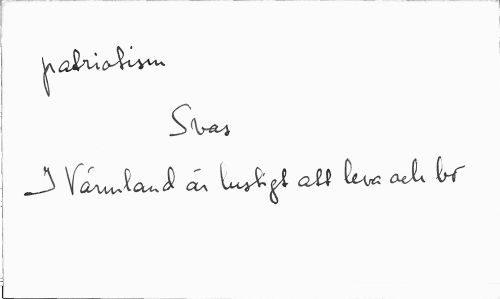 patriotism
Svas
I Värmland är lustigt att leva och bo